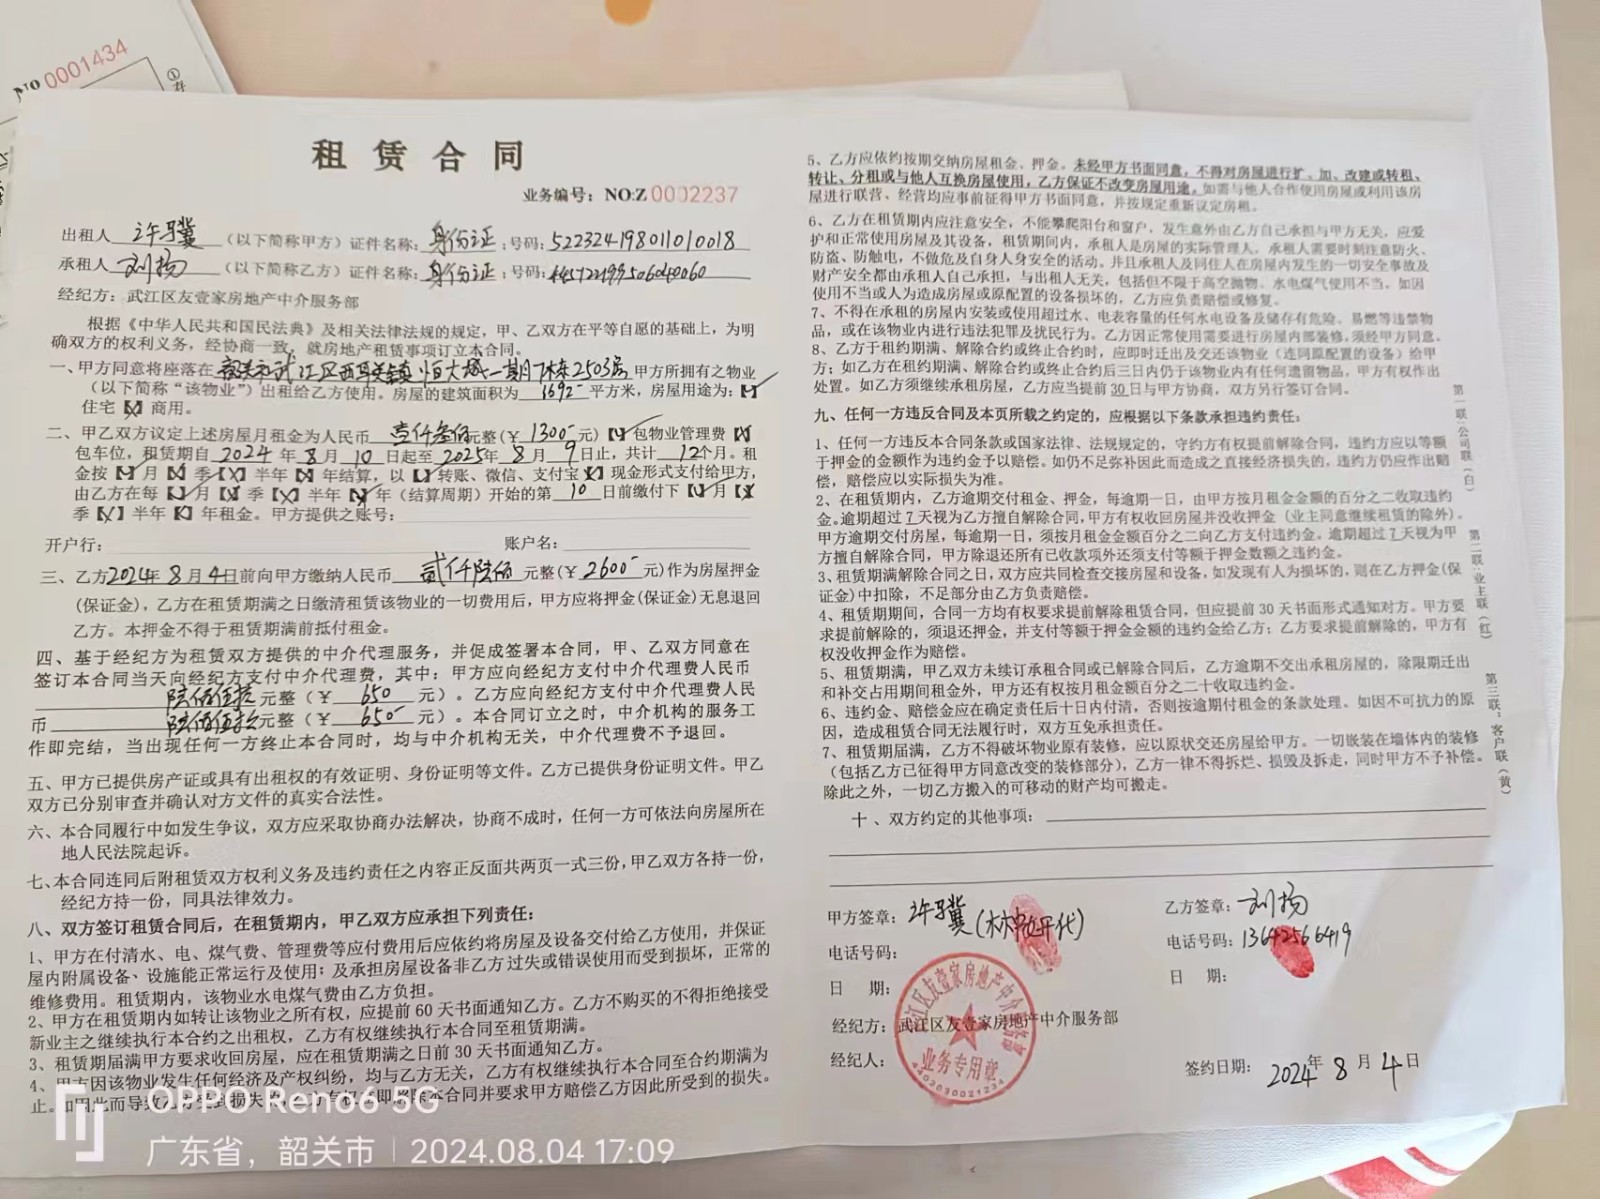 No 0001434
租赁合同
业务编号：NO:Z0002237
出租人 许骥 （以下简称甲方）证件名称：身份证；号码：522324198011010018
承租人 刘扬 （以下简称乙方）证件名称：身份证；号码：
经纪方：武江区友壹家房地产中介服务部
根据《中华人民共和国民法典》及相关法律法规的规定，甲、乙双方在平等自愿的基础上，为明
确双方的权利义务，经协商一致，就房地产租赁事项订立本合同。
一、甲方同意将座落在 韶关市武江区西联镇恒大城一期7栋2503房 甲方所拥有之物业
（以下简称“该物业”）出租给乙方使用。房屋的建筑面积为 平方米，房屋用途为：【✓】
住宅【X】商用。
二、甲乙双方议定上述房屋月租金为人民币 壹仟叁佰 元整（￥ 1300 元）【✓】包物业管理费【X】
包车位，租赁期自 2024 年 8 月 10 日起至 2025 年 8 月 9 日止，共计 12 个月。租
金按【✓】月【X】季【X】半年【X】年结算，以【✓】转账、微信、支付宝【X】现金形式支付给甲方，
由乙方在每【✓】月【X】季【X】半年【X】年（结算周期）开始的第 10 日前缴付下【✓】月【X】
季【X】半年【X】年租金。甲方提供之账号：
开户行： 账户名：
三、乙方2024年8月4日前向甲方缴纳人民币 贰仟陆佰 元整（￥ 2600 元）作为房屋押金
（保证金），乙方在租赁期满之日缴清租赁该物业的一切费用后，甲方应将押金（保证金）无息退回
乙方。本押金不得于租赁期满前抵付租金。
四、基于经纪方为租赁双方提供的中介代理服务，并促成签署本合同，甲、乙双方同意在
签订本合同当天向经纪方支付中介代理费，其中：甲方应向经纪方支付中介代理费人民币
陆佰伍拾元整（￥ 650 元）。乙方应向经纪方支付中介代理费人民
币 陆佰伍拾元整（￥ 650 元）。本合同订立之时，中介机构的服务工
作即完结，当出现任何一方终止本合同时，均与中介机构无关，中介代理费不予退回。
五、甲方已提供房产证或具有出租权的有效证明、身份证明等文件。乙方已提供身份证明文件。甲乙
双方已分别审查并确认对方文件的真实合法性。
六、本合同履行中如发生争议，双方应采取协商办法解决，协商不成时，任何一方可依法向房屋所在
地人民法院起诉。
七、本合同连同后附租赁双方权利义务及违约责任之内容正反面共两页一式三份，甲乙双方各持一份，
经纪方持一份，同具法律效力。
八、双方签订租赁合同后，在租赁期内，甲乙双方应承担下列责任：
1、甲方在付清水、电、煤气费、管理费等应付费用后应依约将房屋及设备交付给乙方使用，并保证
屋内附属设备、设施能正常运行及使用；及承担房屋设备非乙方过失或错误使用而受到损坏，正常的
维修费用。租赁期内，该物业水电煤气费由乙方负担。
2、甲方在租赁期内如转让该物业之所有权，应提前60天书面通知乙方。乙方不购买的不得拒绝接受
新业主之继续执行本合约之出租权，乙方有权继续执行本合同至租赁期满。
3、租赁期届满甲方要求收回房屋，应在租赁期满之日前30天书面通知乙方。
4、甲方因该物业发生任何经济及产权纠纷，均与乙方无关，乙方有权继续执行本合同至合约期满为
止。如因此而导致乙方受到损失的，乙方有权立即解除本合同并要求甲方赔偿乙方因此所受到的损失。
5、乙方应依约按期交纳房屋租金、押金。未经甲方书面同意，不得对房屋进行扩、加、改建或转租、
转让、分租或与他人互换房屋使用，乙方保证不改变房屋用途，如需与他人合作使用房屋或利用该房
屋进行联营、经营均应事前征得甲方书面同意，并按规定重新议定房租。
6、乙方在租赁期内应注意安全，不能攀爬阳台和窗户，发生意外由乙方自己承担与甲方无关，应爱
护和正常使用房屋及其设备，租赁期间内，承租人是房屋的实际管理人，承租人需要时刻注意防火、
防盗、防触电，不做危及自身人身安全的活动。并且承租人及同住人在房屋内发生的一切安全事故及
财产安全都由承租人自己承担，与出租人无关，包括但不限于高空抛物、水电煤气使用不当。如因
使用不当或人为造成房屋或原配置的设备损坏的，乙方应负责赔偿或修复。
7、不得在承租的房屋内安装或使用超过水、电表容量的任何水电设备及储存有危险、易燃等违禁物
品，或在该物业内进行违法犯罪及扰民行为。乙方因正常使用需要进行房屋内部装修，须经甲方同意。
8、乙方于租约期满、解除合约或终止合约时，应即时迁出及交还该物业（连同原配置的设备）给甲
方；如乙方在租约期满、解除合约或终止合约后三日内仍于该物业内有任何遗留物品，甲方有权作出
处置。如乙方须继续承租房屋，乙方应当提前30日与甲方协商，双方另行签订合同。
九、任何一方违反合同及本页所载之约定的，应根据以下条款承担违约责任：
1、任何一方违反本合同条款或国家法律、法规规定的，守约方有权提前解除合同，违约方应以等额
于押金的金额作为违约金予以赔偿。如仍不足弥补因此而造成之直接经济损失的，违约方仍应作出赔
偿，赔偿应以实际损失为准。
2、在租赁期内，乙方逾期交付租金、押金，每逾期一日，由甲方按月租金金额的百分之二收取违约
金。逾期超过7天视为乙方擅自解除合同，甲方有权收回房屋并没收押金（业主同意继续租赁的除外）。
甲方逾期交付房屋，每逾期一日，须按月租金金额百分之二向乙方支付违约金。逾期超过7天视为甲
方擅自解除合同，甲方除退还所有已收款项外还须支付等额于押金数额之违约金。
3、租赁期满解除合同之日，双方应共同检查交接房屋和设备，如发现有人为损坏的，则在乙方押金（保
证金）中扣除，不足部分由乙方负责赔偿。
4、租赁期期间，合同一方均有权要求提前解除租赁合同，但应提前30天书面形式通知对方。甲方要
求提前解除的，须退还押金，并支付等额于押金金额的违约金给乙方；乙方要求提前解除的，甲方有
权没收押金作为赔偿。
5、租赁期满，甲乙双方未续订承租合同或已解除合同后，乙方逾期不交出承租房屋的，除限期迁出
和补交占用期间租金外，甲方还有权按月租金额百分之二十收取违约金。
6、违约金、赔偿金应在确定责任后十日内付清，否则按逾期付租金的条款处理。如因不可抗力的原
因，造成租赁合同无法履行时，双方互免承担责任。
7、租赁期届满，乙方不得破坏物业原有装修，应以原状交还房屋给甲方。一切嵌装在墙体内的装修
（包括乙方已征得甲方同意改变的装修部分），乙方一律不得拆烂、损毁及拆走，同时甲方不予补偿。
除此之外，一切乙方搬入的可移动的财产均可搬走。
十、双方约定的其他事项：
第一联：公司联（白）
第二联：业主联（红）
第三联：客户联（黄）
甲方签章：许骥
乙方签章：刘扬
电话号码：
电话号码：13642566419
日 期：
日 期：
经纪方：武江区友壹家房地产中介服务部
经纪人：
签约日期：2024年8月4日
武江区友壹家房地产中介服务部
业务专用章
4402030021234
OPPO Reno6 5G
广东省，韶关市 | 2024.08.04 17:09